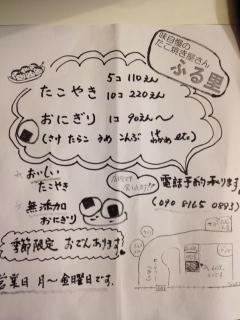 味自慢の
たこ焼き屋さん
ふる里
たこやき 5コ 110えん
10コ 220えん
おにぎり 1コ 90えん〜
(さけ たらこ うめ こんぶ わかめ etc)
おいしい
たこやき
無添加
おにぎり
電話予約承ります
(090 8165 0883)
季節限定 おでんあります
営業日 月〜金曜日です。